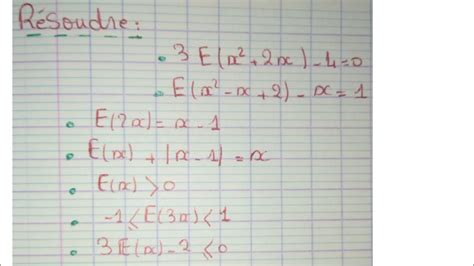 Résoudre:
• 3 E(x² + 2x) - 4 = 0
• E(x² - x + 2) - x = 1
• E(2x) = x - 1
• E(x) + |x - 1| = x
• E(x) > 0
• -1 ≤ E(3x) < 1
• 3E(x) - 2 ≤ 0